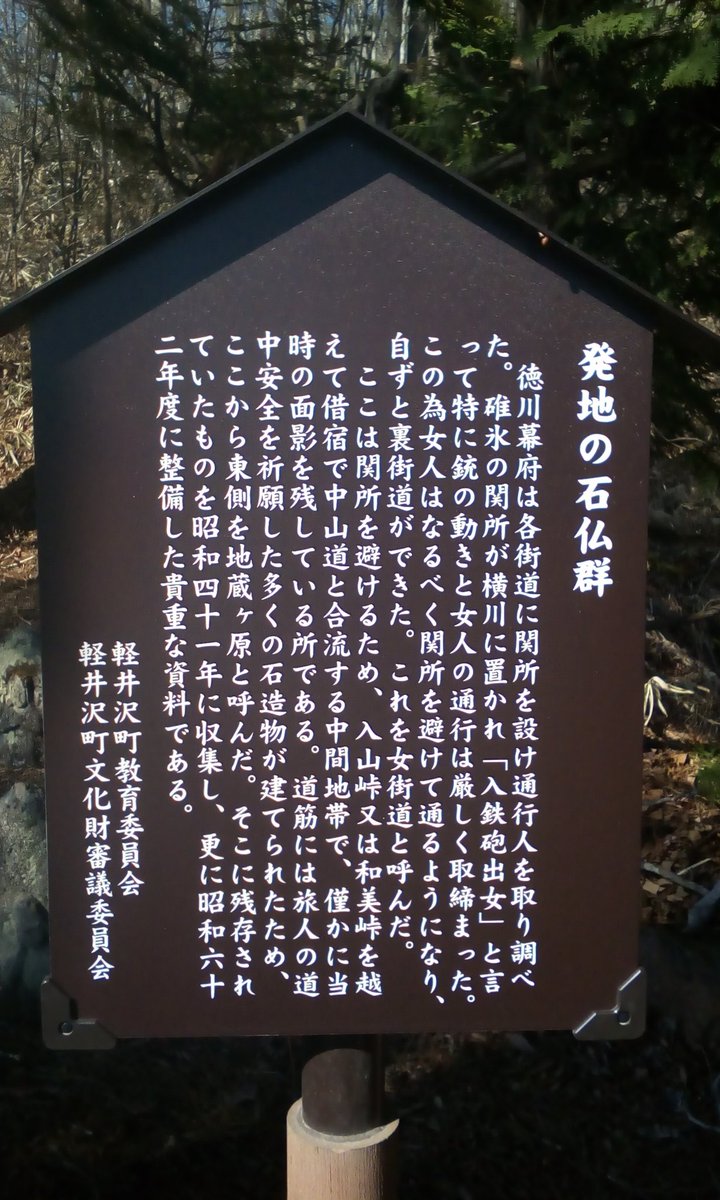 発地の石仏群
徳川幕府は各街道に関所を設け通行人を取り調べ
た。碓氷の関所が横川に置かれ「入鉄砲出女」と言
って特に銃の動きと女人の通行は厳しく取締まった。
この為女人はなるべく関所を避けて通るようになり、
自ずと裏街道ができた。これを女街道と呼んだ。
ここは関所を避けるため、入山峠又は和美峠を越
えて借宿で中山道と合流する中間地帯で、僅かに当
時の面影を残している所である。道筋には旅人の道
中安全を祈願した多くの石造物が建てられたため、
ここから東側を地蔵ヶ原と呼んだ。そこに残存され
ていたものを昭和四十一年に収集し、更に昭和六十
二年度に整備した貴重な資料である。
軽井沢町教育委員会
軽井沢町文化財審議委員会